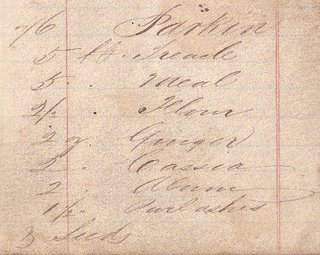 76 Parkin
5 lb. Treacle
5 . Meal
2½ . Flour
2 g. Ginger
2 . Cassia
2 . Alum
1½ . Pearlashes
Seeds